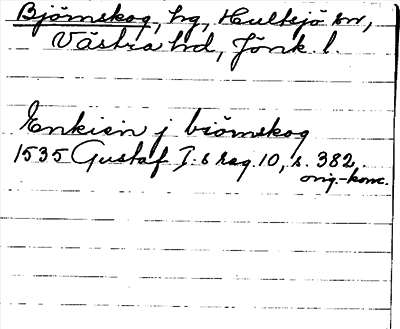 Björnskog, hg, Hultsjö sn,
Västra hd, Jönk. l.
Enkien j biörnskog
1535 Gustaf I:s reg. 10, s. 382.
orig.-konc.